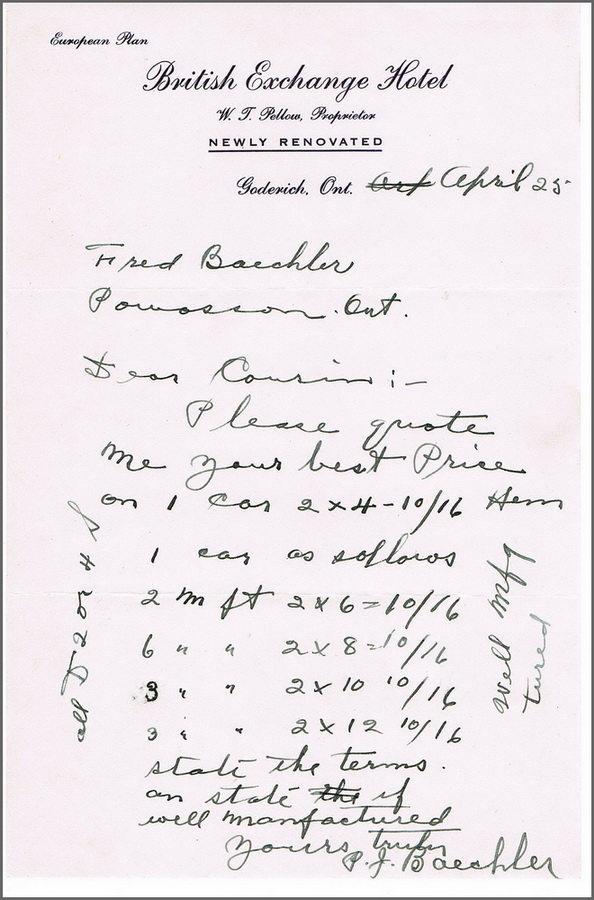 European Plan
British Exchange Hotel
W. T. Pellow, Proprietor
NEWLY RENOVATED
Goderich, Ont. April 25
Fred Baechler
Powosson. Ont.
Dear Cousin :-
Please quote
me your best Price
on 1 car 2x4-10/16 Hem
1 car as sollows
2 m ft 2x6=10/16
6 " " 2x8=10/16
3 " " 2x10 10/16
3 " " 2x12 10/16
state the terms.
an state the if
well manfactured
Yours truly
P. J. Baechler
all D 2 or 4 S
well mfg
tured